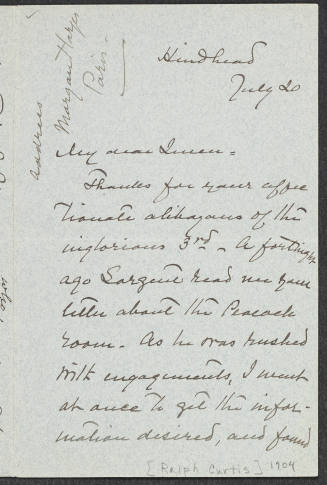 Address
Morgan Harjes
Paris.
Hindhead
July 20
My dear Queen =
Thanks for your affec
tionate of the
inglorious 3rd. A fortnight
ago Sargent read me your
letter about the Peacock
room. As he was rushed
with engagements, I went
at once to get the infor-
mation desired, and found
[Ralph Curtis] 1904